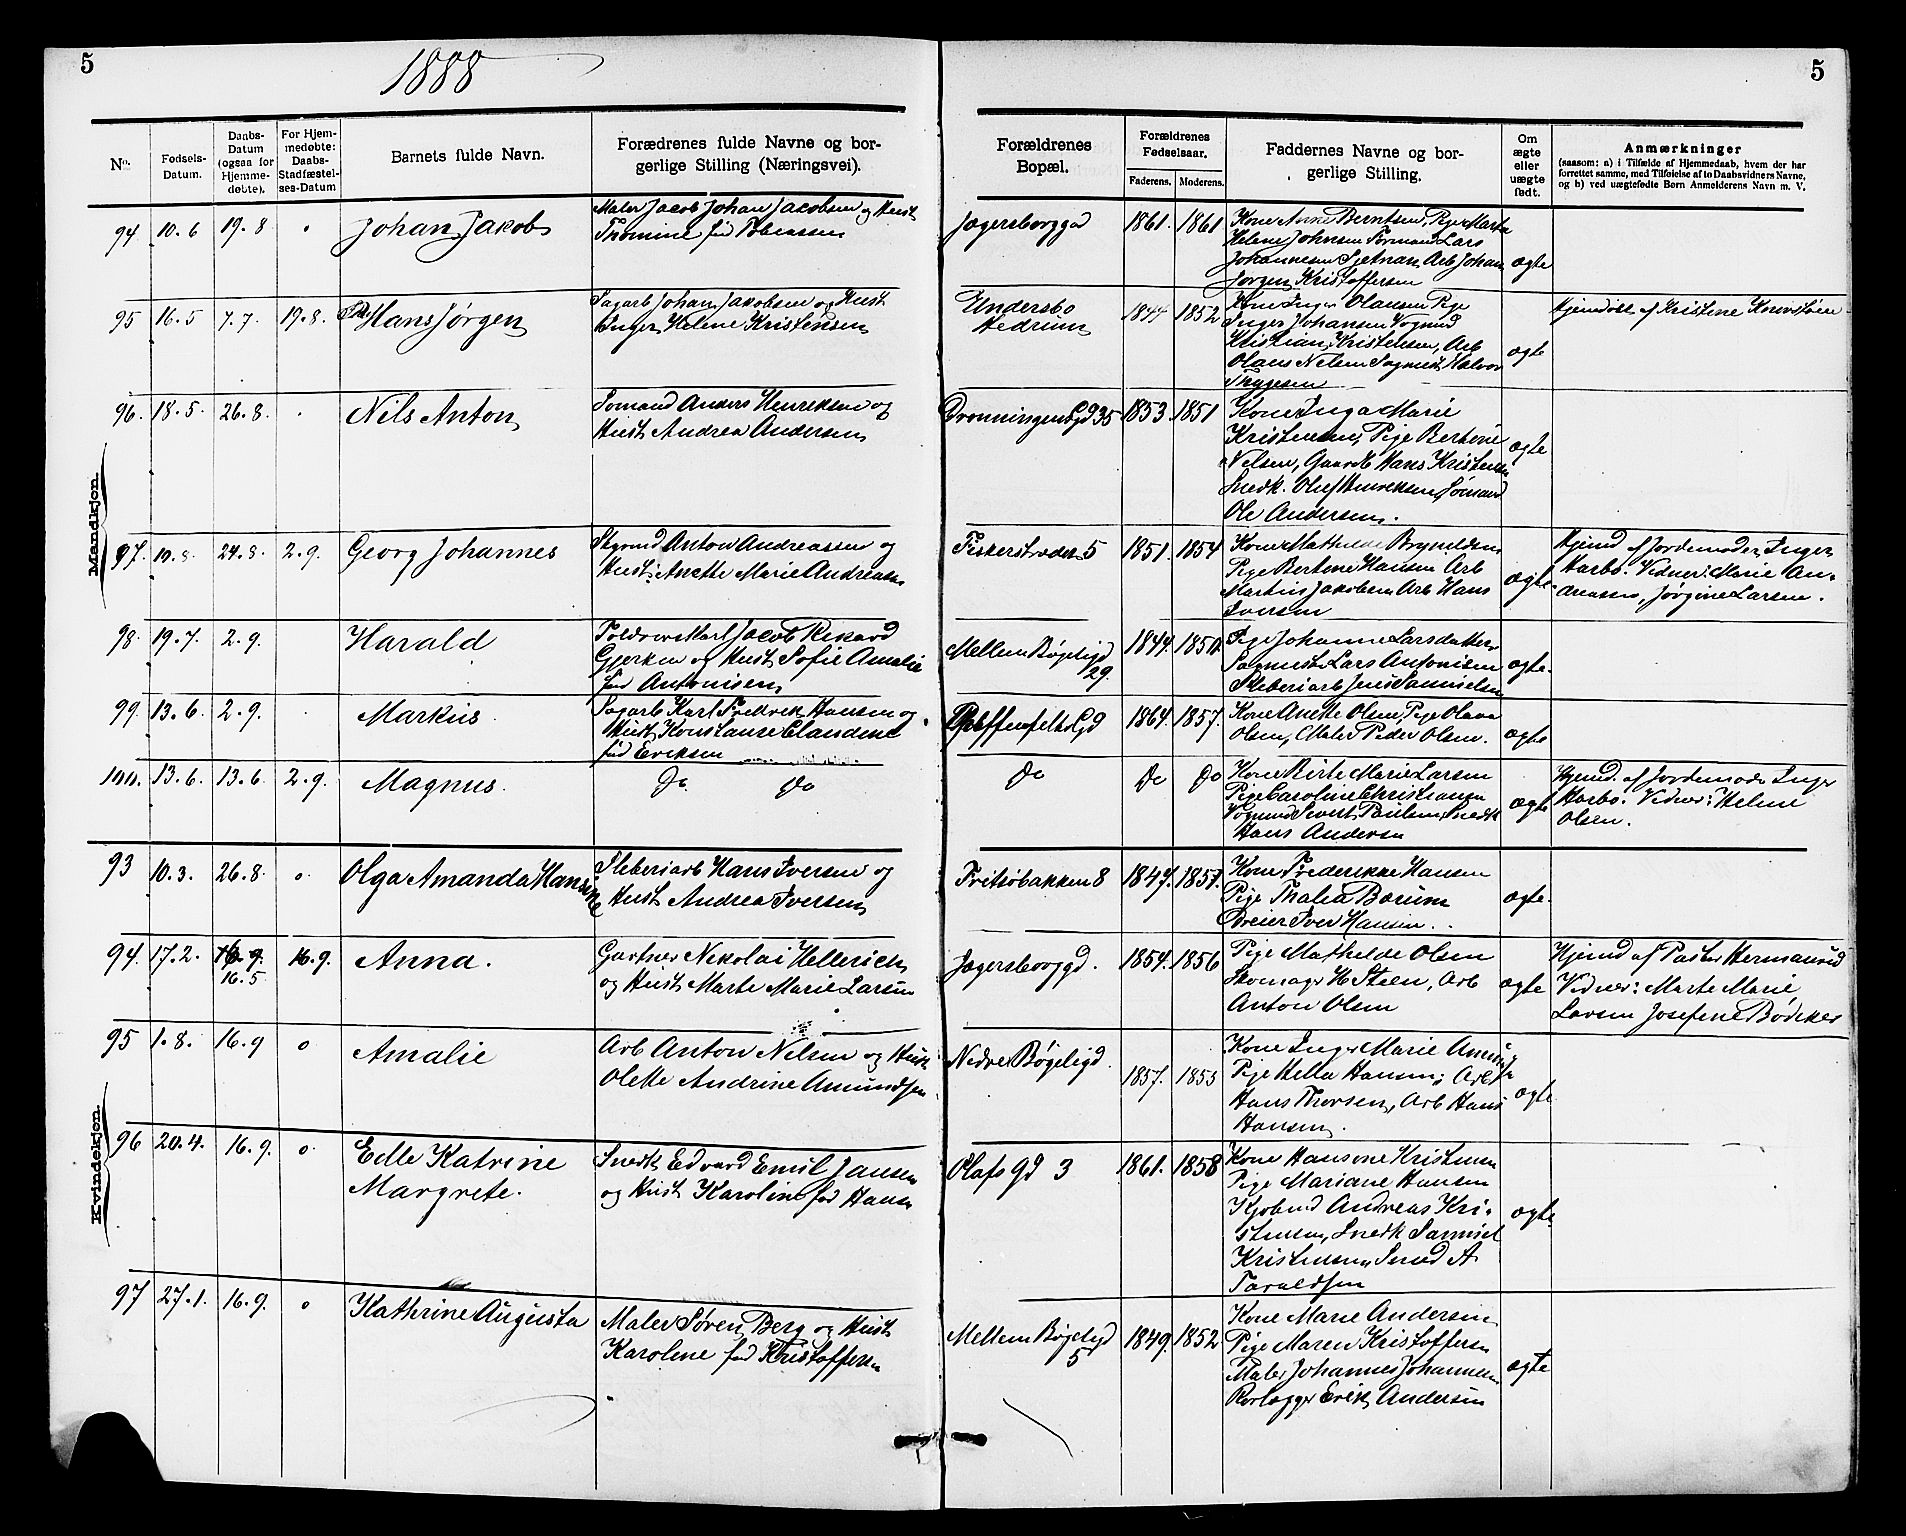 5
1888
5
No.
Fødsels-
Datum.
Daabs-
Datum
(ogsaa for
Hjemme-
døbte).
For Hjem-
medøbte:
Daabs-
Stadfæstel-
ses-Datum
Barnets fulde Navn.
Forædrenes fulde Navne og bor-
gerlige Stilling (Næringsvei).
Forældrenes
Bopæl.
Forældrenes
Fødselsaar.
Faderens. Moderens.
Faddernes Navne og bor-
gerlige Stilling.
Om
ægte
eller
uægte
født.
Anmærkninger
(saasom: a) i Tilfælde af Hjemmedaab, hvem der har
forrettet samme, med Tilføielse af to Daabsvidners Navne,
og b) ved uægtefødte Børn Anmelderens Navn m. V.
Mandkjøn.
94 10.6 19.8 Johan Jakob
Maler Jacob Johan Jacobsen og Hust
Tomine fød Tobiassen
Jægersborggd 1861. 1861
Kone Anne Berntsen, Pige Marta
Helene Johnsen Formand Lars
Johannesen Sjetnan Arb Johan
Jørgen Kristoffersen
ægte
95 16.5 7.7. 19.8. Hans Jørgen
Sagarb Johan Jakobsen og Hust
Inger Helene Kristensen
Undersbo
Hedrum 1844 1852
Kone Inger Olausen Pige
Inger Johansen Vognmd
Kristian Kristensen, Arb
Olaus Nilsen Sagmest Halvor
Thygesen
ægte
Hjemdøbt af Kristine
96. 18.5. 26.8. Nils Anton
Sømand Anders Henriksen og
Hust Andrea Andersen
Dronningens Gd 35 1853 1851
Kone Inga Marie
Kristensen, Pige Bertine
Nilsen, Gaardb Hans Kristensen
Snedk. Oluf Henriksen, Sømand
Ole Andersen.
ægte
97. 19.8. 24.8. 2.9. Georg Johannes
Styrmd Anton Andreassen og
Hust. Anette Marie Andreasen
Fiskerstrædet 5 1851. 1854
Kone Mathilde Bryndldsen
Pige Bertine Hansen Arb
Martin Jakobsen Arb Hans
Iversen
ægte
Hjemd af Jordemoder Inger
Harbo. Vidner: Marie An-
dreassen, Jørgine Larsen.
98. 19.7. 2.9. Harald
Jacob Rikard
Gjerken og Hust Sofie Amalie
fød Antonisen
Mellem Bøgeligd
29. 1844. 1850.
Pige Johanne Larsdatter
Sagmest Lars Antonisen
Støberiarb Jens Samuelsen
ægte.
99. 13.6. 2.9. Markus.
Sagarb Karl Fredrik Hansen og
Hust Konstanse Claudine
fød Eriksen
1864. 1857.
Kone Anette Olsen, Pige Olava
Olsen, Maler Peder Olsen.
ægte
100. 13.6. 13.6. 2.9. Magnus.
Do. Do
Do Do Do
Kone Birte Marie Larsen
Pige Caroline Christiansen
Vognmd Sivert Paulsen, Snedk
Hans Andersen
ægte
Hjemd. af Jordemoder Inger
Harbo. Vidner: Helene
Olsen.
Kvindekjøn.
93 10.3. 26.8. o. Olga Amanda Hansine
Støberiarb Hans Iversen og
Hust Andrea Iversen
Fritsøbakken 8 1847. 1857.
Kone Frederikke Hansen
Pige Thalia Borum
Dreier Iver Hansen.
ægte.
94. 17.2. 16.9.
16.5 16.9. Anna.
Gartner Nikolai Hellerich
og Hust Marte Marie Larsen
Jægersborggd. 1854. 1856
Pige Mathilde Olsen
Skomager H Steen, Arb
Anton Olsen
ægte
Hjemd af Pastor Hermanrud
Vidner: Marte Marie
Larsen Josefine Bødtker
95 1.8. 16.9 o Amalie
Arb Anton Nilsen og Hust
Olette Andrine Amundsen
Nedre Bøgeligd. 1857. 1853
Kone Inger Marie
Pige Hella Hansen, Arb
Hans Thorsen, Arb Hans
Hansen.
ægte
96 20.4. 16.9. o. Edle Katrine
Margrete.
Snedk Edvard Emil Jansen
og Hust Karoline fød Hansen
Olafs Gd 3 1861. 1858
Kone Hansine Kristensen
Pige Mariane Hansen
Kjøbmd Andreas Kri-
stensen, Snedk Samuel
Kristensen, Smed A
Taraldsen
ægte
97 27.1. 16.9. o Kathrine Augusta
Maler Søren Berg og Hust
Karoline fød Kristoffersen
Mellem Bøgeligd
5 1849. 1852
Kone Marie Andersen
Pige Maren Kristoffersen
Maler Johannes Johannesen
Rørlægger Erik Andersen
ægte